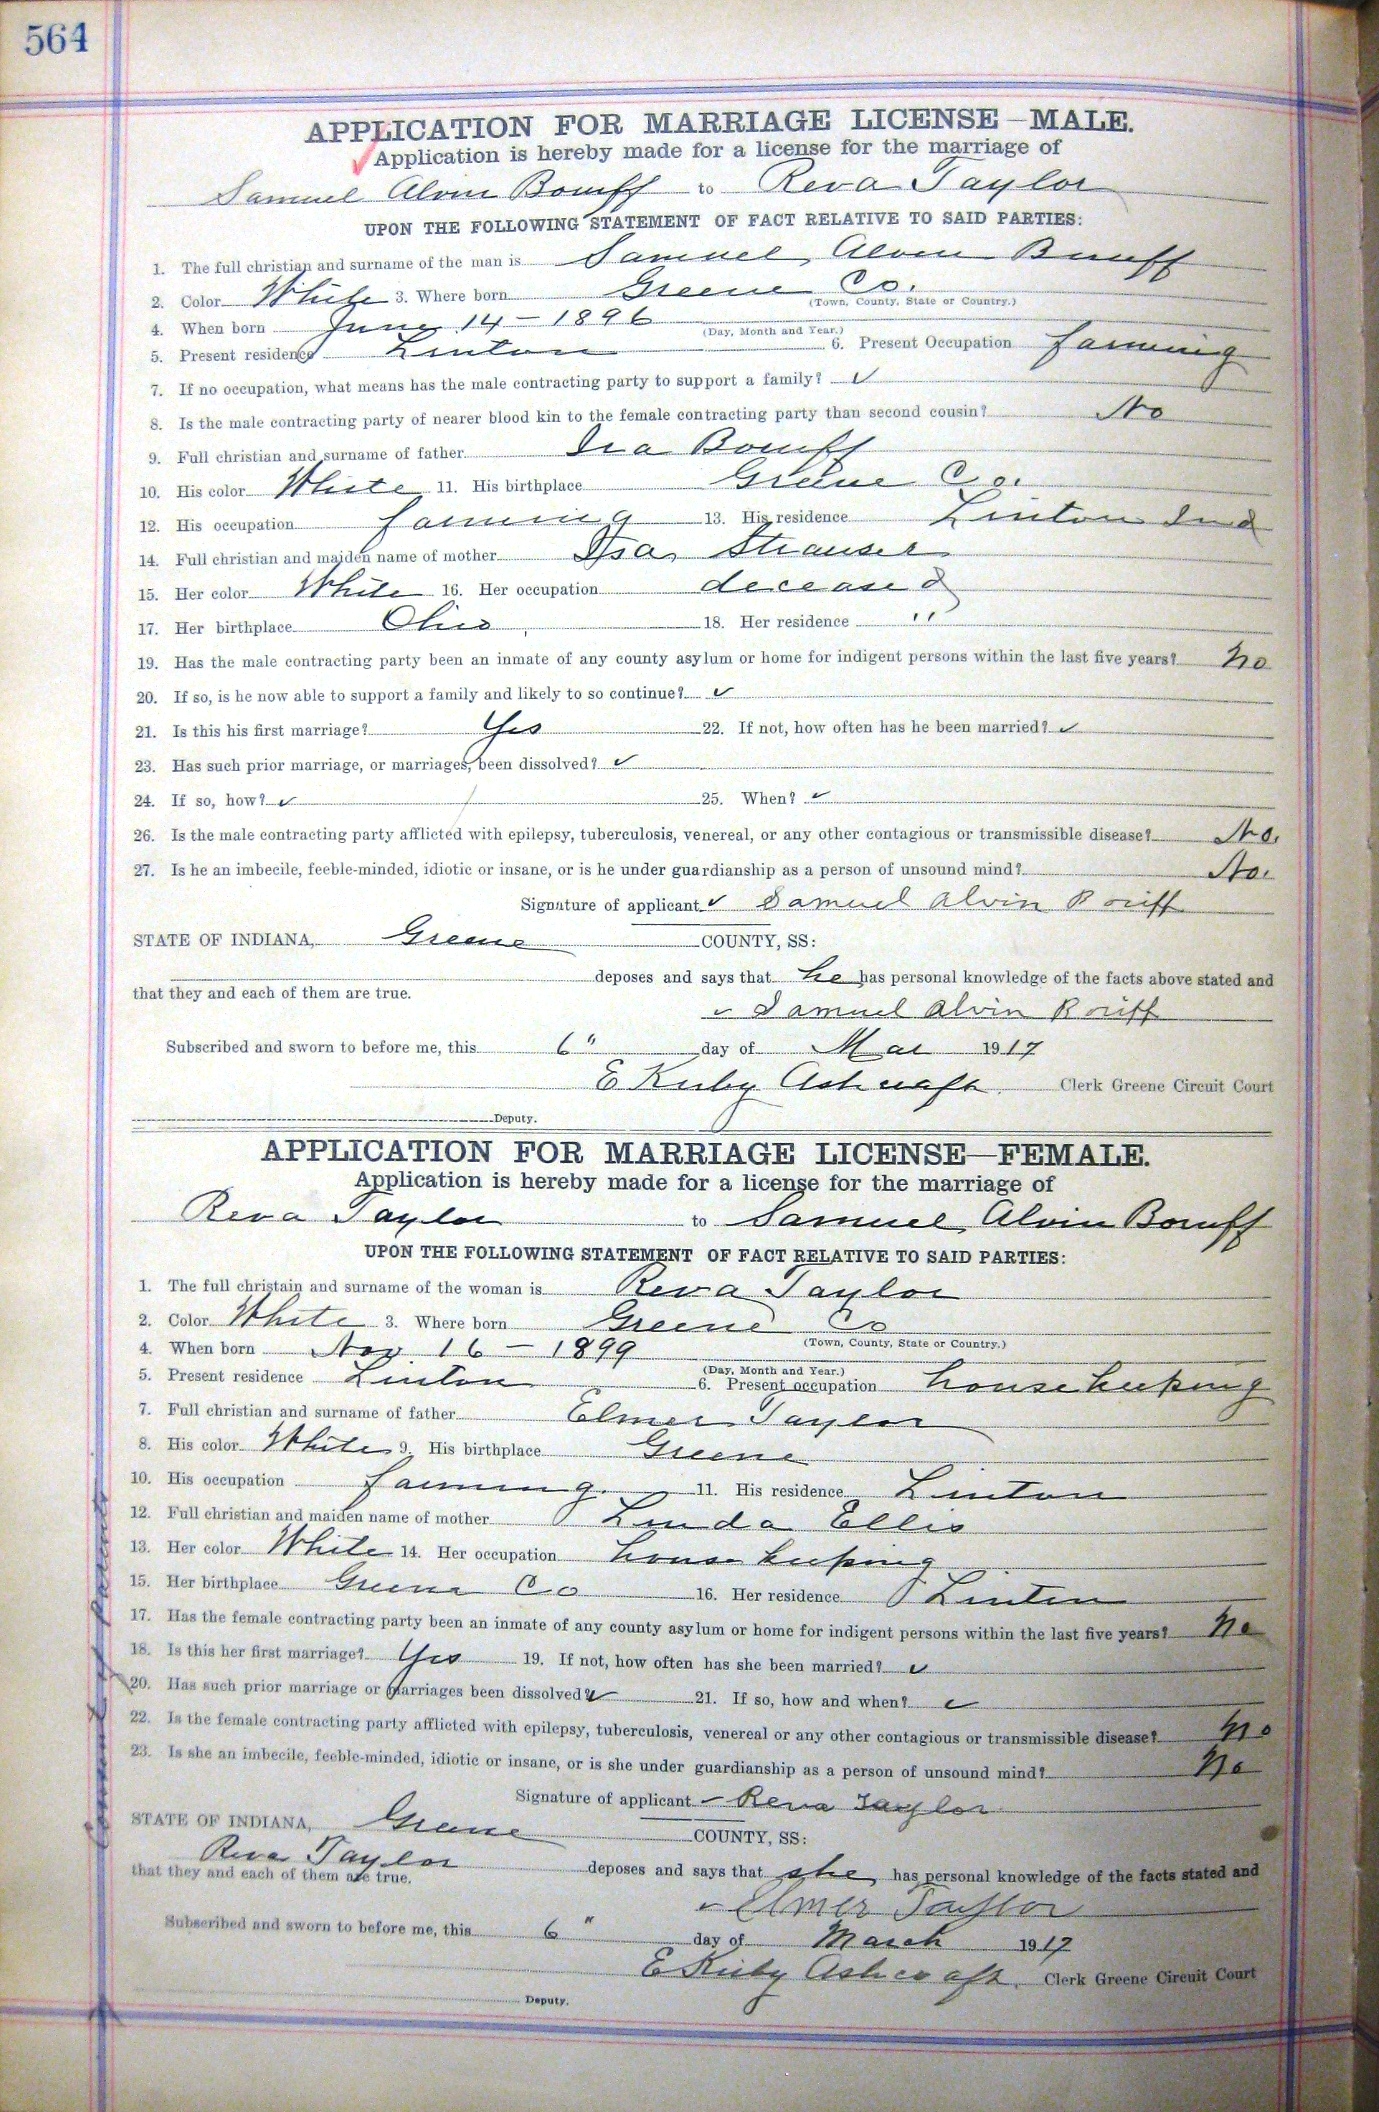 564
APPLICATION FOR MARRIAGE LICENSE—MALE.
Application is hereby made for a license for the marriage of
Samuel Alvin Boruff to Reva Taylor
UPON THE FOLLOWING STATEMENT OF FACT RELATIVE TO SAID PARTIES:
1. The full christian and surname of the man is Samuel Alvin Boruff
2. Color White 3. Where born Greene Co.
(Town, County, State or Country.)
4. When born June 14 - 1896
(Day, Month and Year.)
5. Present residence Linton 6. Present Occupation farming
7. If no occupation, what means has the male contracting party to support a family? ✓
8. Is the male contracting party of nearer blood kin to the female contracting party than second cousin? No
9. Full christian and surname of father Ira Boruff
10. His color White 11. His birthplace Greene Co.
12. His occupation farming 13. His residence Linton Ind
14. Full christian and maiden name of mother Strauser
15. Her color White 16. Her occupation deceased
17. Her birthplace Ohio 18. Her residence ''
19. Has the male contracting party been an inmate of any county asylum or home for indigent persons within the last five years? No
20. If so, is he now able to support a family and likely to so continue? ✓
21. Is this his first marriage? Yes 22. If not, how often has he been married? ✓
23. Has such prior marriage, or marriages, been dissolved? ✓
24. If so, how? ✓ 25. When? ✓
26. Is the male contracting party afflicted with epilepsy, tuberculosis, venereal, or any other contagious or transmissible disease? No.
27. Is he an imbecile, feeble-minded, idiotic or insane, or is he under guardianship as a person of unsound mind? No.
Signature of applicant ✓ Samuel Alvin Boruff
STATE OF INDIANA, Greene COUNTY, SS:
deposes and says that he has personal knowledge of the facts above stated and
that they and each of them are true.
✓ Samuel Alvin Boruff
Subscribed and sworn to before me, this 6" day of Mar 1917
E Kirby Ashcraft Clerk Greene Circuit Court
Deputy.
APPLICATION FOR MARRIAGE LICENSE—FEMALE.
Application is hereby made for a license for the marriage of
Reva Taylor to Samuel Alvin Boruff
UPON THE FOLLOWING STATEMENT OF FACT RELATIVE TO SAID PARTIES:
1. The full christain and surname of the woman is Reva Taylor
2. Color White 3. Where born Greene Co
(Town, County, State or Country.)
4. When born Nov 16 - 1899
(Day, Month and Year.)
5. Present residence Linton 6. Present occupation housekeeping
7. Full christian and surname of father Elmer Taylor
8. His color White 9. His birthplace Greene
10. His occupation farming 11. His residence Linton
12. Full christian and maiden name of mother Linda Ellis
13. Her color White 14. Her occupation housekeeping
15. Her birthplace Greene Co 16. Her residence Linton
17. Has the female contracting party been an inmate of any county asylum or home for indigent persons within the last five years? No
18. Is this her first marriage? Yes 19. If not, how often has she been married? ✓
20. Has such prior marriage or marriages been dissolved? ✓ 21. If so, how and when? ✓
22. Is the female contracting party afflicted with epilepsy, tuberculosis, venereal or any other contagious or transmissible disease? No
23. Is she an imbecile, feeble-minded, idiotic or insane, or is she under guardianship as a person of unsound mind? No
Signature of applicant ✓ Reva Taylor
STATE OF INDIANA, Greene COUNTY, SS:
Reva Taylor deposes and says that she has personal knowledge of the facts stated and
that they and each of them are true.
✓ Elmer Taylor
Subscribed and sworn to before me, this 6" day of March 1917
E Kirby Ashcraft. Clerk Greene Circuit Court
Deputy.
Consent of parents